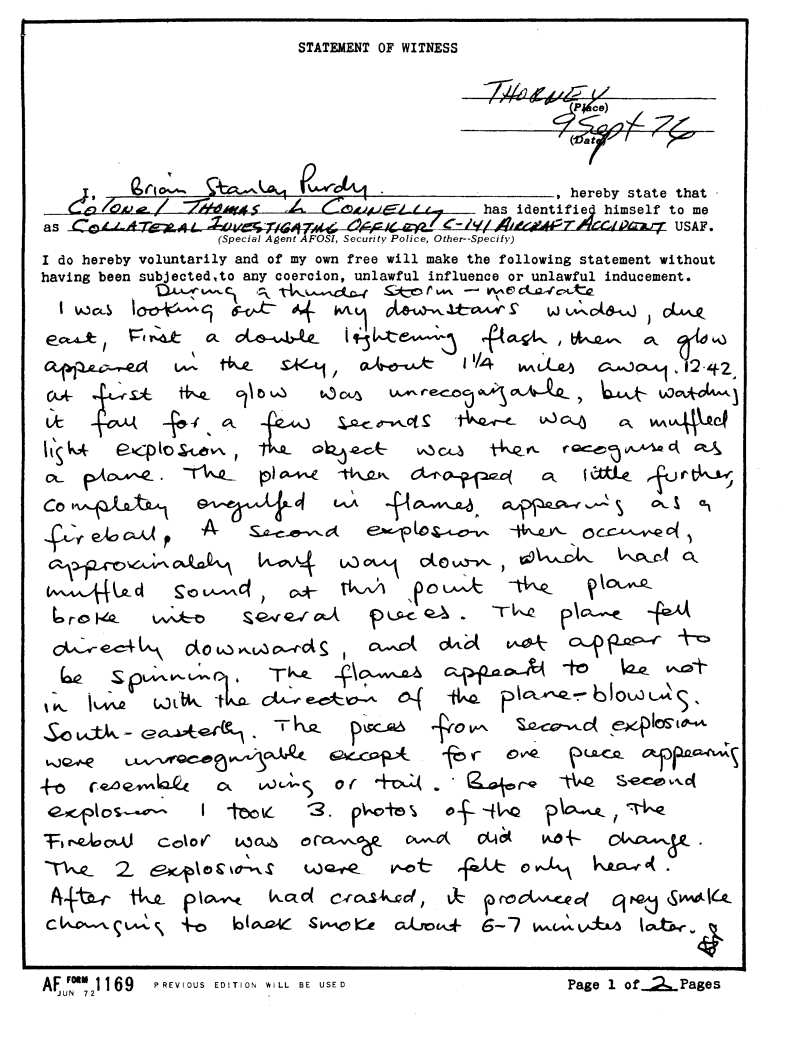 STATEMENT OF WITNESS
THORNEY
(Place)
9 Sept 76
(Date)
I, Brian Stanley Purdy. , hereby state that
Colonel THOMAS L CONNELLY has identified himself to me
as COLLATERAL INVESTIGATING OFFICER C-141 AIRCRAFT ACCIDENT USAF.
(Special Agent AFOSI, Security Police, Other--Specify)
I do hereby voluntarily and of my own free will make the following statement without
having been subjected to any coercion, unlawful influence or unlawful inducement.
During a thunder storm - moderate
I was looking out of my downstairs window, due
east, First a double lightening flash, then a glow
appeared in the sky, about 1 1/4 miles away. 12.42,
at first the glow was unrecognizable, but watching
it fall for a few seconds there was a muffled
light explosion, the object was then recognised as
a plane. The plane then dropped a little further,
completey engulfed in flames, appearing as a
fireball, A second explosion then occured,
approximately half way down, which had a
muffled sound, at this point the plane
broke into several pieces. The plane fell
directly downwards, and did not appear to
be spinning. The flames appeard to be not
in line with the direction of the plane - blowing.
South-easterly. The pieces from second explosion
were unrecognizable except for one piece appearing
to resemble a wing or tail. Before the second
explosion I took 3. photos of the plane, The
Fireball color was orange and did not change.
The 2 explosions were not felt only heard.
After the plane had crashed, it produced grey smoke
changing to black smoke about 6-7 minutes later.
AF FORM 1169 PREVIOUS EDITION WILL BE USED Page 1 of 2 Pages
JUN 72